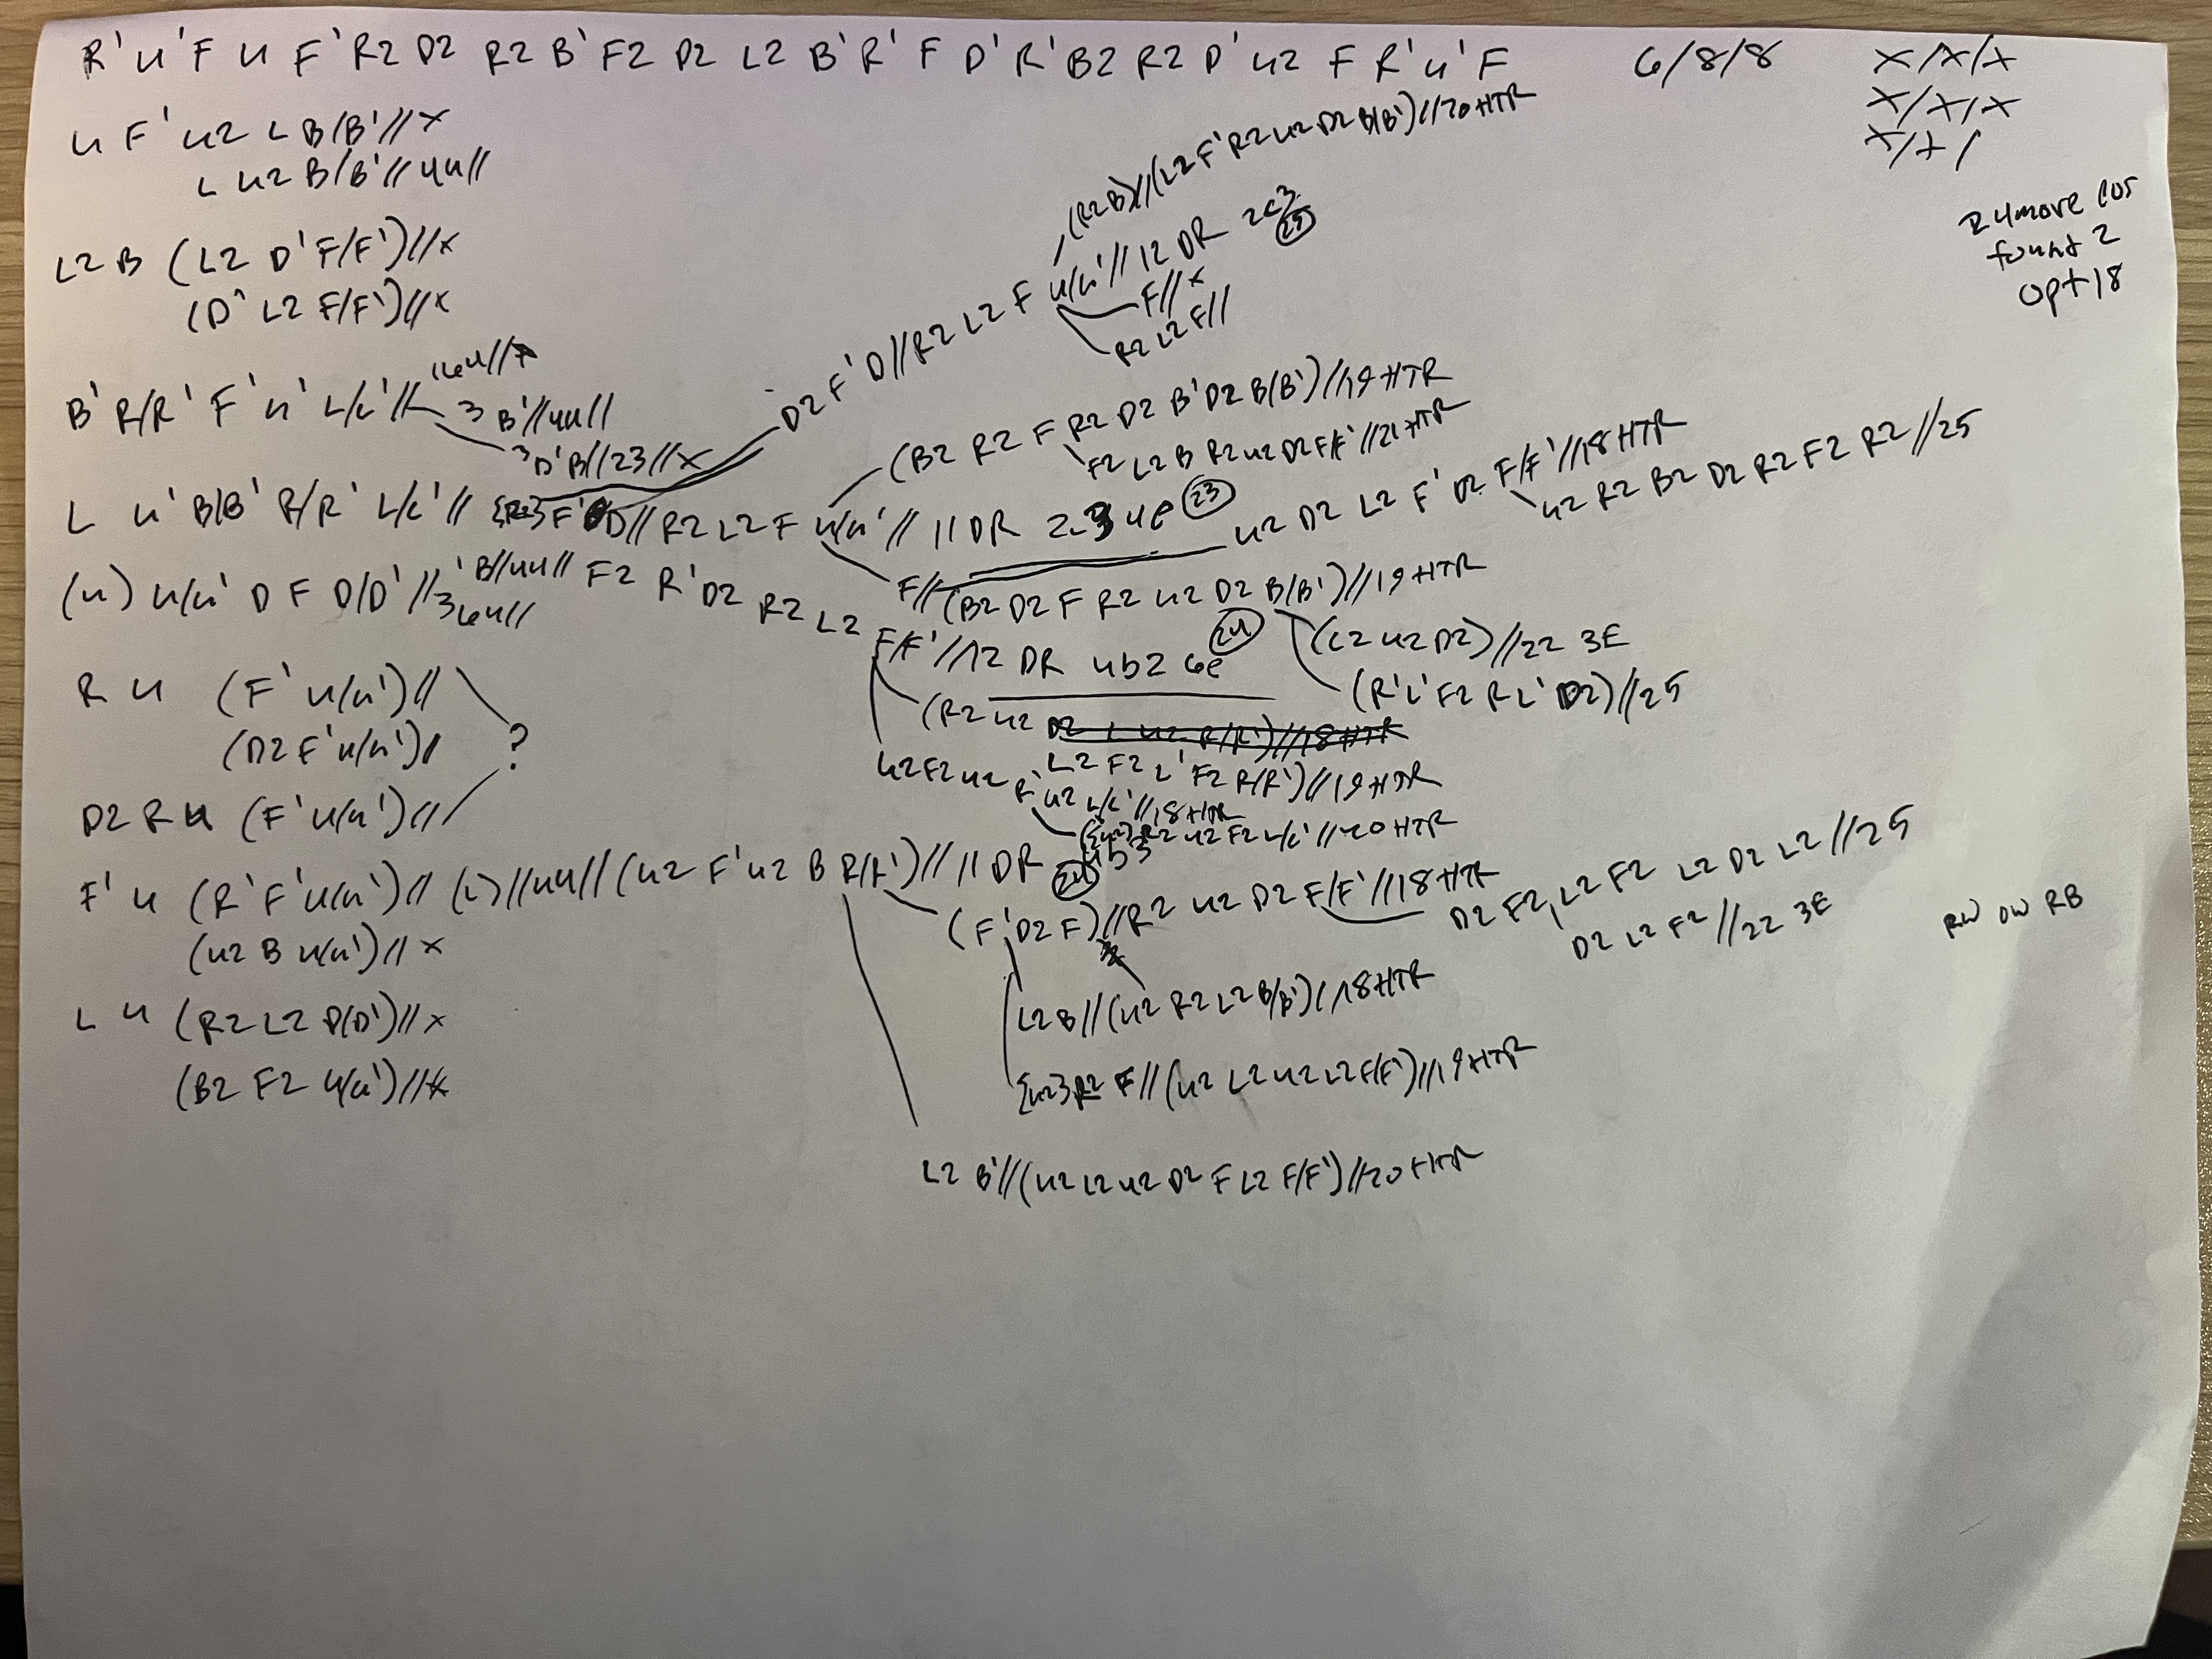 R' U' F U F' R2 D2 R2 B' F2 D2 L2 B' R' F D' R' B2 R2 D' U2 F R' U' F
6/8/8
X/X/X
X/X/X
X/X/
24 move EOs
found 2
opt 18
U F' U2 L B/B' // X
L U2 B/B' // 4U //
L2 B (L2 D' F/F') // X
(D' L2 F/F') // X
B' R/R' F' U' L/L' //
3 B' // 4U //
3 D' B // 23 // X
D2 F' D // R2 L2 F U/U' // 12 DR 2C3
25
(R2 B) // (L2 F' R2 U2 D2 B/B') // 20 HTR
F // X
R2 L2 F //
L U' B/B' R/R' L/L' // {R2} F' D // R2 L2 F U/U' // 11 DR 2C3 4E
23
(B2 R2 F R2 D2 B' D2 B/B') // 19 HTR
F2 L2 B R2 U2 D2 F/F' // 21 HTR
U2 D2 L2 F' D2 F/F' // 18 HTR
U2 R2 B2 D2 R2 F2 R2 // 25
F // (B2 D2 F R2 U2 D2 B/B') // 19 HTR
(L2 U2 D2) // 22 3E
(R' L' F2 R L' D2) // 25
(U) U/U' D F D/D' //
B // 4U // F2 R' D2 R2 L2 F/F' // 12 DR 4b2 6e
24
(R2 U2 L2 F2 L' F2 R/R') // 19 HTR
U2 F2 U2 R' U2 L/L' // 18 HTR
R2 U2 F2 L/L' // 20 HTR
R U (F' U/U') //
(D2 F' U/U') //
?
D2 R U (F' U/U') //
F' U (R' F' U/U') // (L) // 4U // (U2 F' U2 B R/R') // 11 DR 4b3
(U2 B U/U') // X
(F' D2 F) // R2 U2 D2 F/F' // 18 HTR
D2 F2, L2 F2 L2 D2 L2 // 25
D2 L2 F2 // 22 3E
RW OW RB
L U (R2 L2 D/D') // X
(B2 F2 U/U') // X
L2 B // (U2 R2 L2 B/B') // 18 HTR
{U2} R2 F // (U2 L2 U2 L2 F/F') // 19 HTR
L2 B' // (U2 L2 U2 D2 F L2 F/F') // 20 HTR